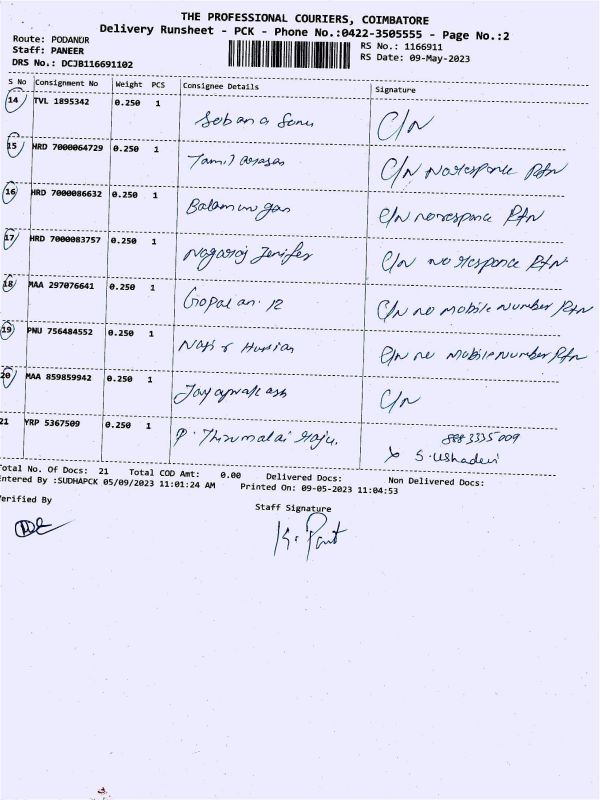 THE PROFESSIONAL COURIERS, COIMBATORE
Delivery Runsheet - PCK - Phone No.:0422-3505555 - Page No.:2
Route: PODANUR
RS No.: 1166911
Staff: PANEER
RS Date: 09-May-2023
DRS No.: DCJB116691102
S No Consignment No Weight PCS Consignee Details Signature
14 TVL 1895342 0.250 1 Sobana Sonu C/N
15 HRD 7000064729 0.250 1 Tamilarasan C/N noresponce Rtn
16 HRD 7000086632 0.250 1 Balamurugan C/N noresponce Rtn
17 HRD 7000083757 0.250 1 Nagaraj Jenifer C/N no responce Rtn
18 MAA 297076641 0.250 1 Gopalan. R C/N no mobile number Rtn
19 PNU 756484552 0.250 1 C/N no mobile number Rtn
20 MAA 859859942 0.250 1 Jayaprakash C/N
21 YRP 5367509 0.250 1 P. Thirumalai Raju. S. Ushadevi
Total No. Of Docs: 21 Total COD Amt: 0.00 Delivered Docs: Non Delivered Docs:
Entered By :SUDHAPCK 05/09/2023 11:01:24 AM Printed On: 09-05-2023 11:04:53
Verified By
Staff Signature